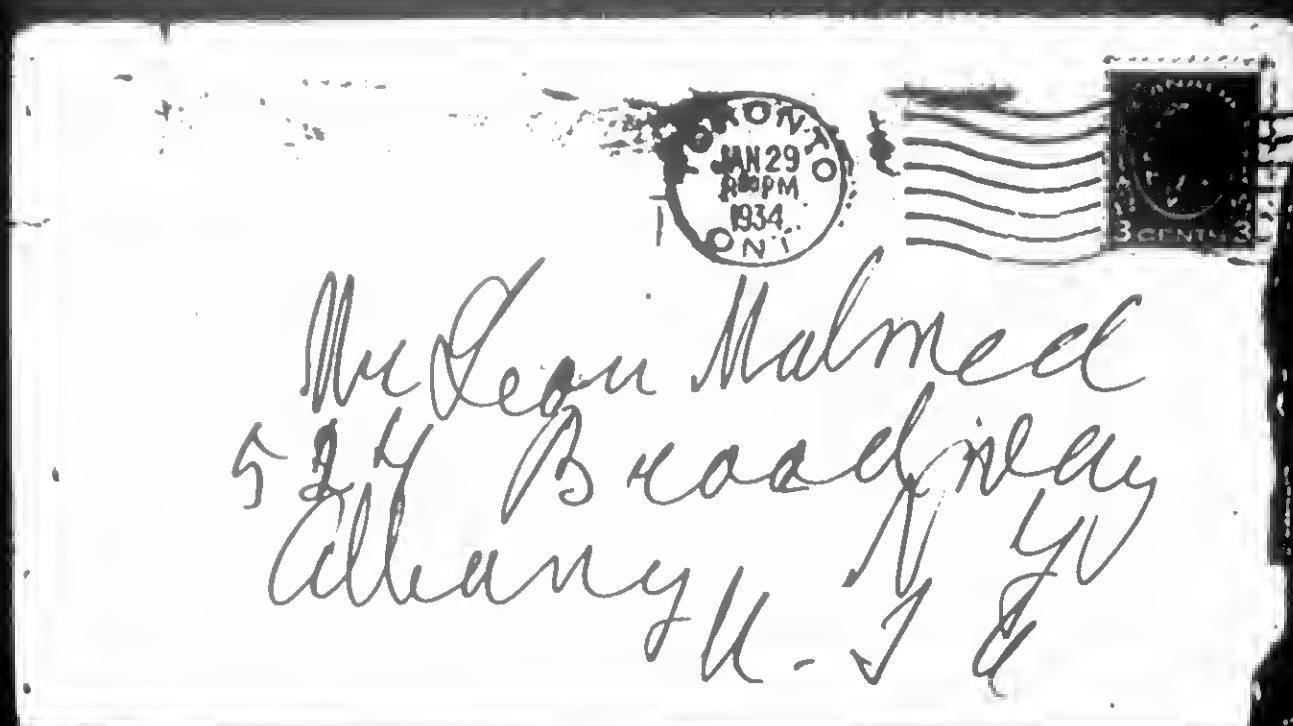 TORONTO
JAN 29
PM
1934
ONT
CANADA
3 CENTS 3
Mr Leon Malmed
527 Broadway
Albany N Y
U. S A